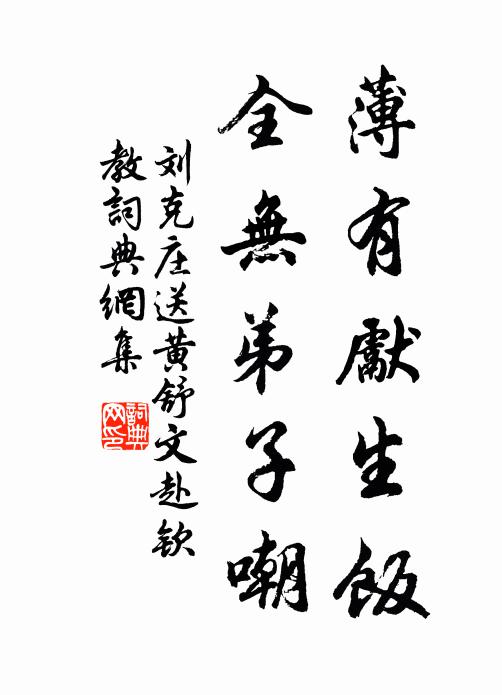 薄有獻生飯
全無弟子嘲
刘克庄送黄舒文赴钦
教詞典網集
詞典
网印